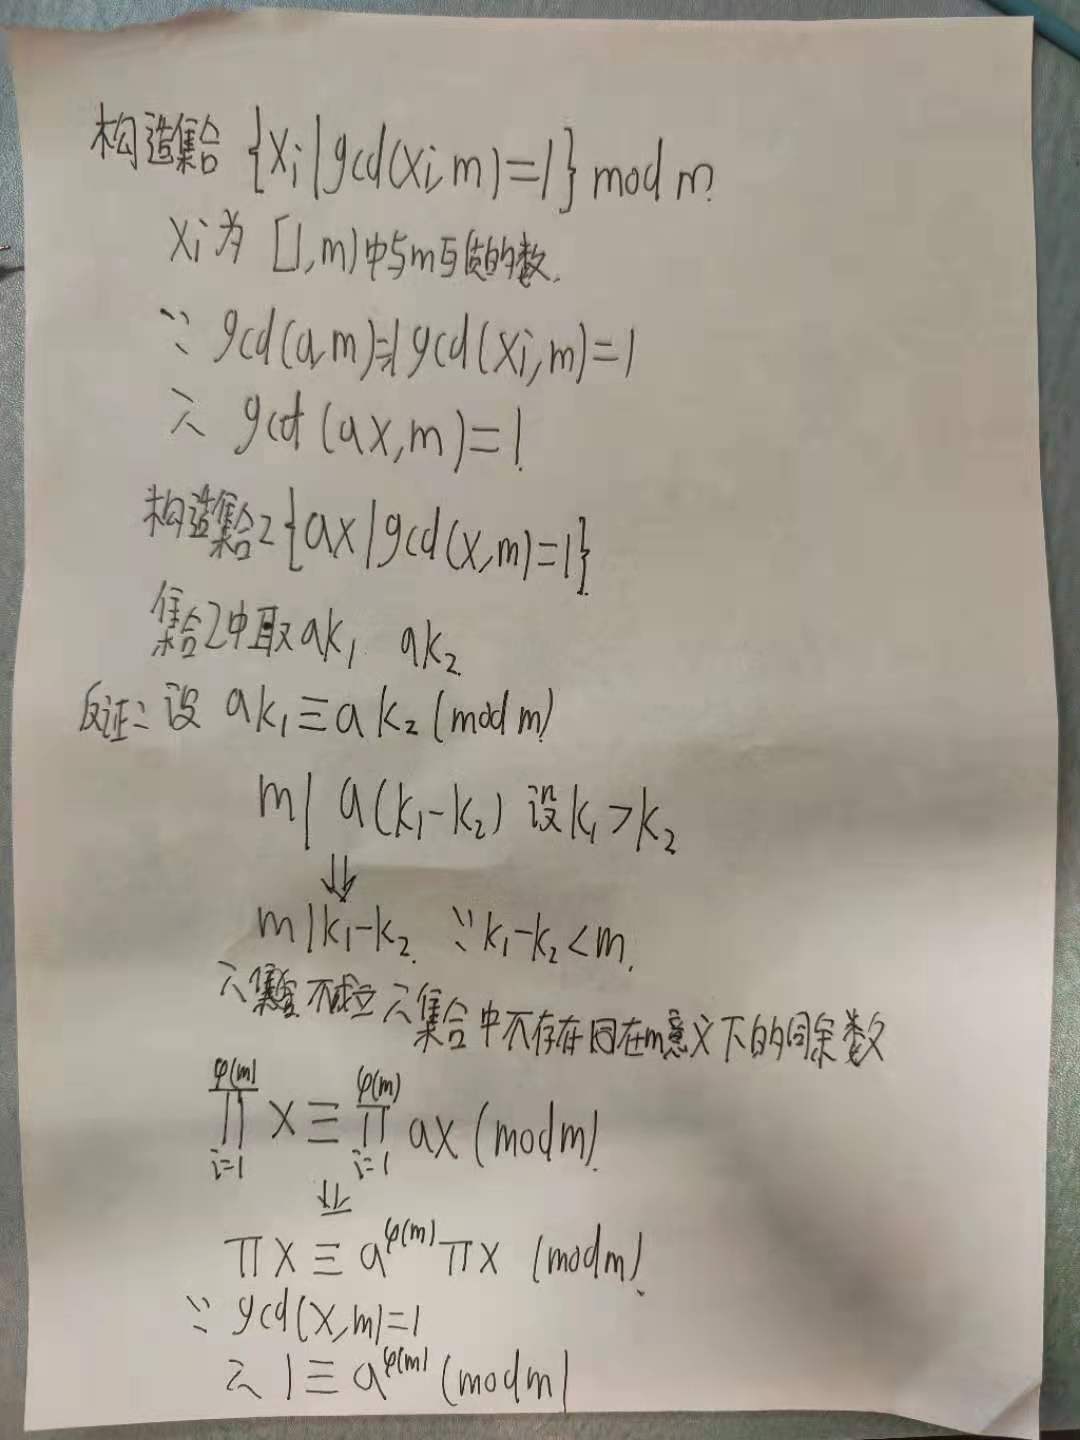 构造集合 {xi | gcd(xi, m) = 1} mod m.
xi为 [1, m) 中与m互质的数.
∵ gcd(a, m)=1 gcd(xi, m) = 1
∴ gcd (ax, m) = 1.
构造集合2 {ax | gcd(x, m) = 1}
集合2中取 ak₁ ak₂.
反证: 设 ak₁ ≡ ak₂ (mod m)
m | a(k₁-k₂) 设 k₁ > k₂
⇓
m | k₁-k₂. ∵ k₁-k₂ < m.
∴ 不成立 ∴ 集合中不存在 在m意义下的同余数
φ(m) φ(m)
∏ x ≡ ∏ ax (mod m).
i=1 i=1
⇓
πx ≡ a^φ(m) πx (mod m).
∵ gcd(x, m) = 1
∴ 1 ≡ a^φ(m) (mod m)